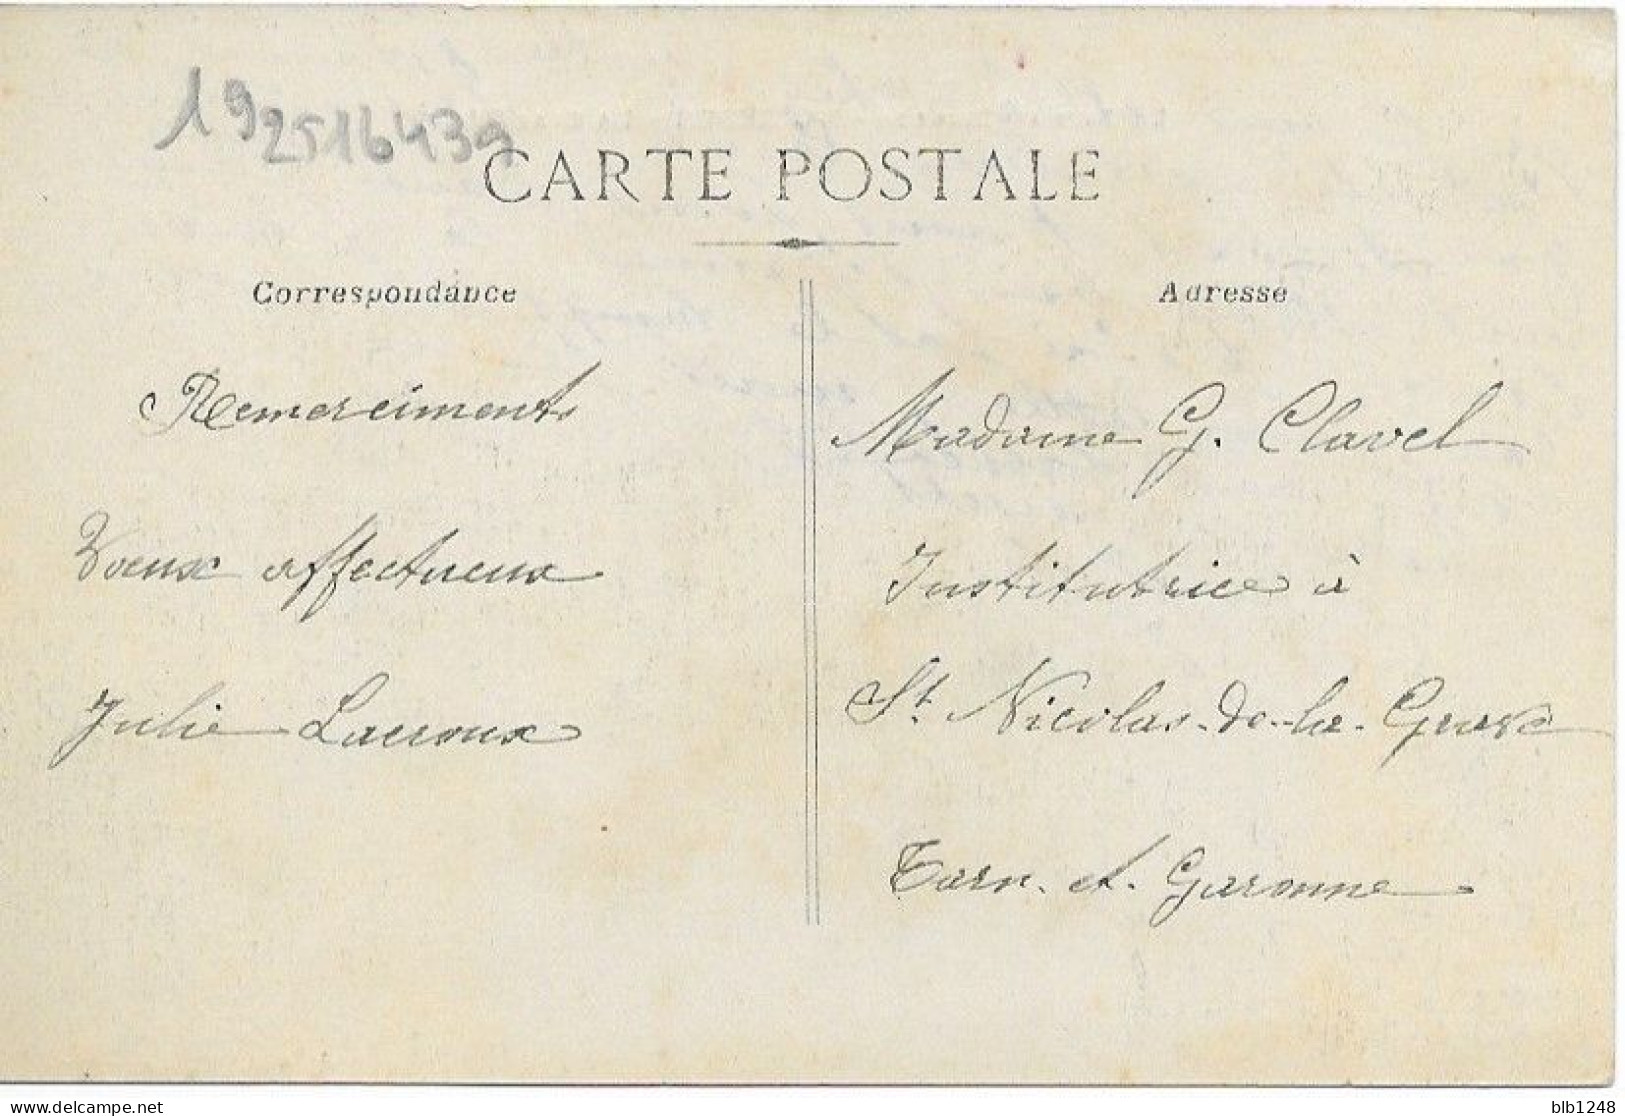 192516439
CARTE POSTALE
Correspondance
Remerciments
Voeux affectueux
Julie Lacroux
Adresse
Madame G. Clavel
Institutrice à
St Nicolas-de-la-Grave
Tarn-et-Garonne
delcampe.net
blb1248